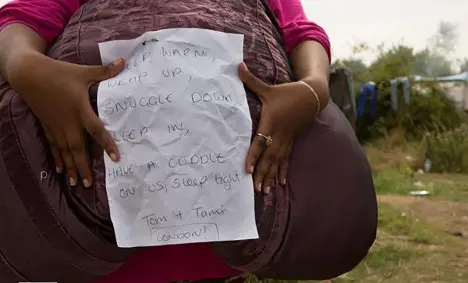 KEEP WARM,
WRAP UP,
SNUGGLE DOWN
SLEEP IN,
HAVE A CUDDLE
ON US, SLEEP tight
Tom + Tami
LONDON!